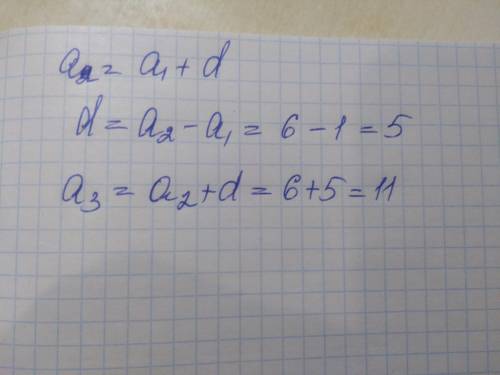 a₂ = a₁ + d
d = a₂ - a₁ = 6 - 1 = 5
a₃ = a₂ + d = 6 + 5 = 11